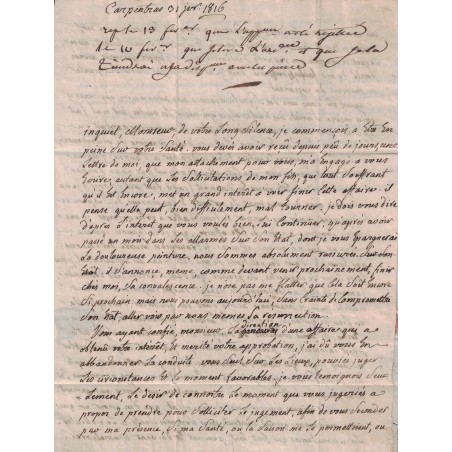 Carpentras 31 jer. 1816
rep le 13 fer. que l'appuy a été rejetté
le 10 fer. que j'el et que je la
tiendrai a sa disposon
inquiet, Monsieur, de votre long silence, je commençois a être en
peine sur votre santé. vous devez avoir reçu depuis peu de jours, une
lettre de moi, que mon attachement pour vous, m'a engagé a vous
écrire, autant que les sollicitations de mon fils, qui tout souffrant
qu'il est encore, met un grand interet a voir finir cette affaire. il
pense qu'elle peut, bien difficilement, mal tourner. je dois vous dire
d'après l'interet que vous voulés bien, lui continuer, qu'après avoir
passé un mois dans des allarmes sur son état, dont je vous epargnerai
la douloureuse peinture, nous sommes absolument rassurés. sur son
état. il s'annonce, meme, comme devant venir prochainement, finir
chez moi, sa convalescence. je n'ose pas me flatter que cela soit encore
si prochain. mais nous pouvons aujourd'hui, sans crainte de compromettre
son état, aller voir par nous memes sa resurrection.
Vous ayant confié, monsieur, la direction d'une affaire qui a
obtenu votre interet, et merité votre approbation, j'ai du vous en
abandonner la conduite. vous seul, sur les lieux, pouviés juger
les circonstances et le moment favorables. je vous temoignois seu-
lement, le desir de connoitre le moment que vous jugeriés a
propos de prendre pour solliciter le jugement, afin de vous seconder
par ma présence, si ma santé, ou la saison me le permettoient, ou